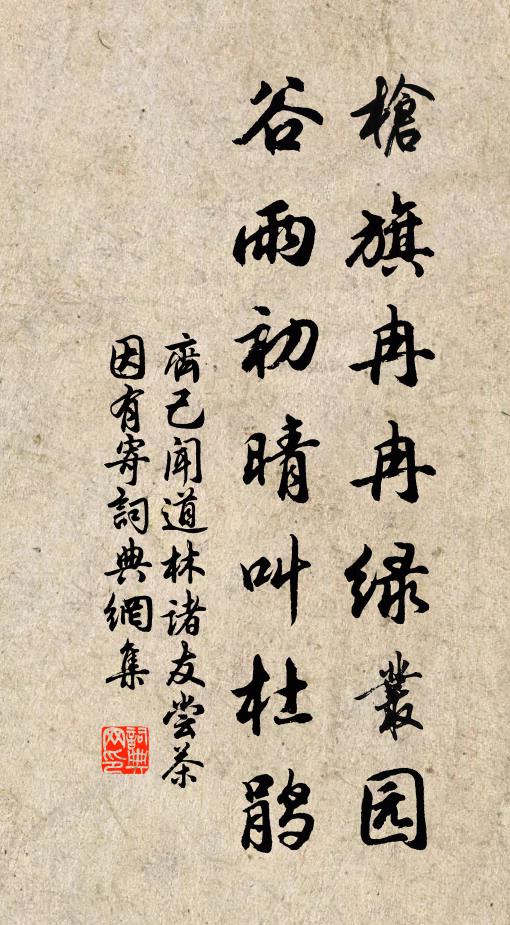 槍旗冉冉绿叢园
谷雨初晴叫杜鹃
齊己闻道林诸友嘗茶
因有寄詞典網集
詞典网印